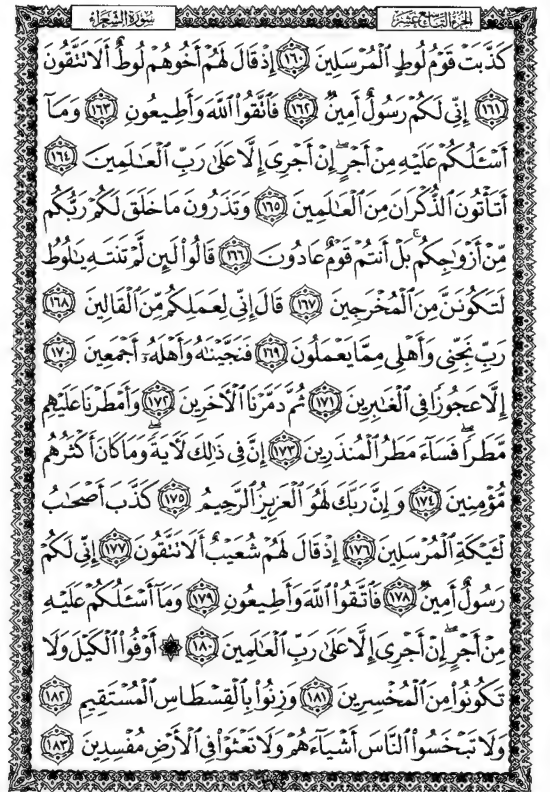 سُورَةُ الشُّعَرَاءِ
الجُزْءُ التَّاسِعَ عَشَرَ
كَذَّبَتْ قَوْمُ لُوطٍ ٱلْمُرْسَلِينَ ١٦٠ إِذْ قَالَ لَهُمْ أَخُوهُمْ لُوطٌ أَلَا تَتَّقُونَ
١٦١ إِنِّي لَكُمْ رَسُولٌ أَمِينٌ ١٦٢ فَٱتَّقُوا۟ ٱللَّهَ وَأَطِيعُونِ ١٦٣ وَمَآ
أَسْـَٔلُكُمْ عَلَيْهِ مِنْ أَجْرٍ ۖ إِنْ أَجْرِىَ إِلَّا عَلَىٰ رَبِّ ٱلْعَـٰلَمِينَ ١٦٤
أَتَأْتُونَ ٱلذُّكْرَانَ مِنَ ٱلْعَـٰلَمِينَ ١٦٥ وَتَذَرُونَ مَا خَلَقَ لَكُمْ رَبُّكُم
مِّنْ أَزْوَٰجِكُم ۚ بَلْ أَنتُمْ قَوْمٌ عَادُونَ ١٦٦ قَالُوا۟ لَئِن لَّمْ تَنتَهِ يَـٰلُوطُ
لَتَكُونَنَّ مِنَ ٱلْمُخْرَجِينَ ١٦٧ قَالَ إِنِّي لِعَمَلِكُم مِّنَ ٱلْقَالِينَ ١٦٨
رَبِّ نَجِّنِى وَأَهْلِى مِمَّا يَعْمَلُونَ ١٦٩ فَنَجَّيْنَـٰهُ وَأَهْلَهُۥٓ أَجْمَعِينَ ١٧٠
إِلَّا عَجُوزًا فِى ٱلْغَـٰبِرِينَ ١٧١ ثُمَّ دَمَّرْنَا ٱلْـَٔاخَرِينَ ١٧٢ وَأَمْطَرْنَا عَلَيْهِم
مَّطَرًا ۖ فَسَآءَ مَطَرُ ٱلْمُنذَرِينَ ١٧٣ إِنَّ فِى ذَٰلِكَ لَـَٔايَةً ۖ وَمَا كَانَ أَكْثَرُهُم
مُّؤْمِنِينَ ١٧٤ وَإِنَّ رَبَّكَ لَهُوَ ٱلْعَزِيزُ ٱلرَّحِيمُ ١٧٥ كَذَّبَ أَصْحَـٰبُ
لْـَٔيْكَةِ ٱلْمُرْسَلِينَ ١٧٦ إِذْ قَالَ لَهُمْ شُعَيْبٌ أَلَا تَتَّقُونَ ١٧٧ إِنِّي لَكُمْ
رَسُولٌ أَمِينٌ ١٧٨ فَٱتَّقُوا۟ ٱللَّهَ وَأَطِيعُونِ ١٧٩ وَمَآ أَسْـَٔلُكُمْ عَلَيْهِ
مِنْ أَجْرٍ ۖ إِنْ أَجْرِىَ إِلَّا عَلَىٰ رَبِّ ٱلْعَـٰلَمِينَ ١٨٠ ۞ أَوْفُوا۟ ٱلْكَيْلَ وَلَا
تَكُونُوا۟ مِنَ ٱلْمُخْسِرِينَ ١٨١ وَزِنُوا۟ بِٱلْقِسْطَاسِ ٱلْمُسْتَقِيمِ ١٨٢
وَلَا تَبْخَسُوا۟ ٱلنَّاسَ أَشْيَآءَهُمْ وَلَا تَعْثَوْا۟ فِى ٱلْأَرْضِ مُفْسِدِينَ ١٨٣